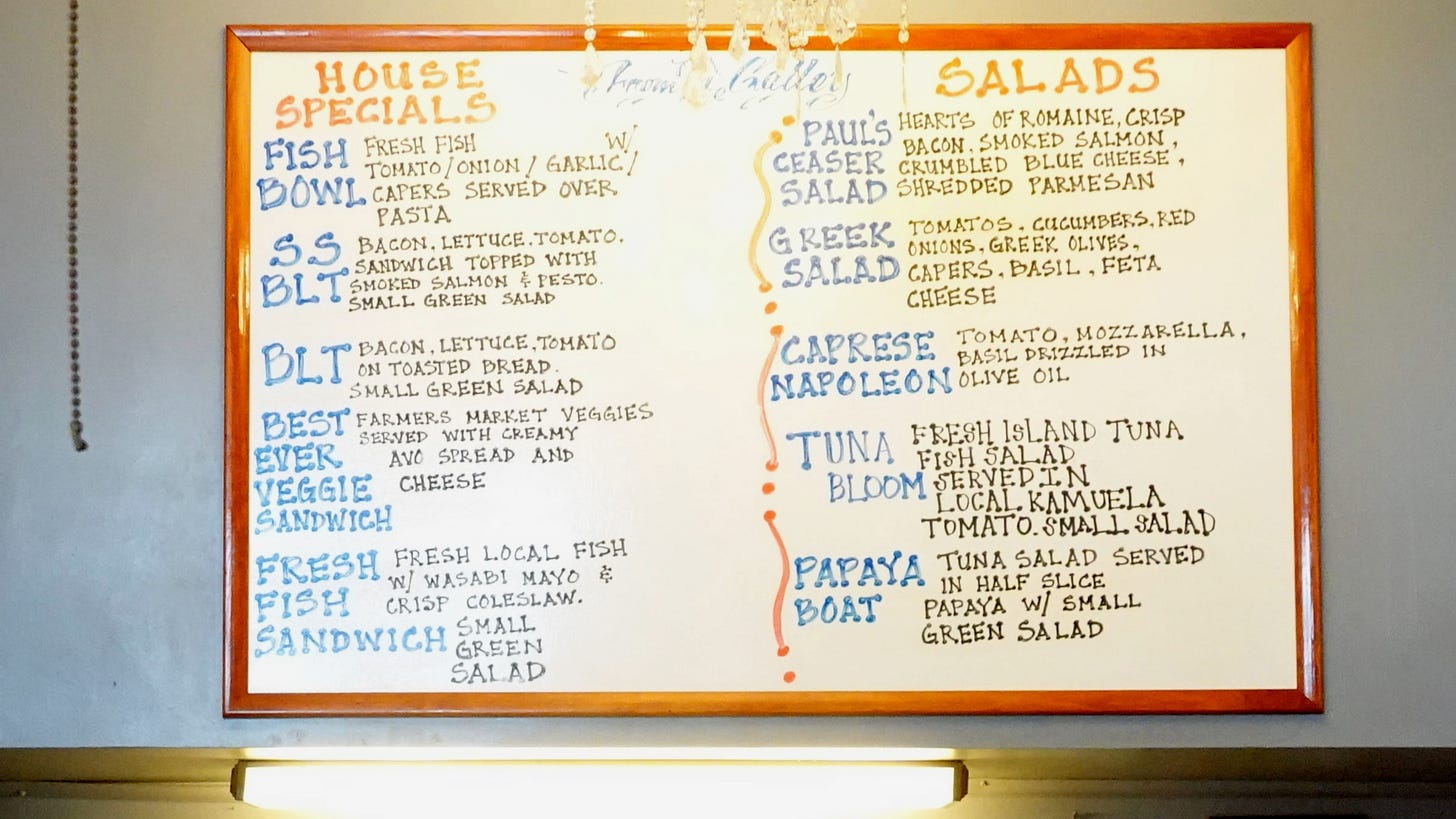 HOUSE
SPECIALS
FISH
BOWL
FRESH FISH W/
TOMATO/ONION/GARLIC/
CAPERS SERVED OVER
PASTA
SS
BLT
BACON, LETTUCE, TOMATO.
SANDWICH TOPPED WITH
SMOKED SALMON & PESTO.
SMALL GREEN SALAD
BLT
BACON, LETTUCE, TOMATO
ON TOASTED BREAD.
SMALL GREEN SALAD
BEST
EVER
VEGGIE
SANDWICH
FARMERS MARKET VEGGIES
SERVED WITH CREAMY
AVO SPREAD AND
CHEESE
FRESH
FISH
SANDWICH
FRESH LOCAL FISH
W/ WASABI MAYO &
CRISP COLESLAW.
SMALL
GREEN
SALAD
SALADS
PAUL'S
CEASER
SALAD
HEARTS OF ROMAINE, CRISP
BACON, SMOKED SALMON,
CRUMBLED BLUE CHEESE,
SHREDDED PARMESAN
GREEK
SALAD
TOMATOS, CUCUMBERS, RED
ONIONS, GREEK OLIVES,
CAPERS, BASIL, FETA
CHEESE
CAPRESE
NAPOLEON
TOMATO, MOZZARELLA,
BASIL DRIZZLED IN
OLIVE OIL
TUNA
BLOOM
FRESH ISLAND TUNA
FISH SALAD
SERVED IN
LOCAL KAMUELA
TOMATO. SMALL SALAD
PAPAYA
BOAT
TUNA SALAD SERVED
IN HALF SLICE
PAPAYA W/ SMALL
GREEN SALAD